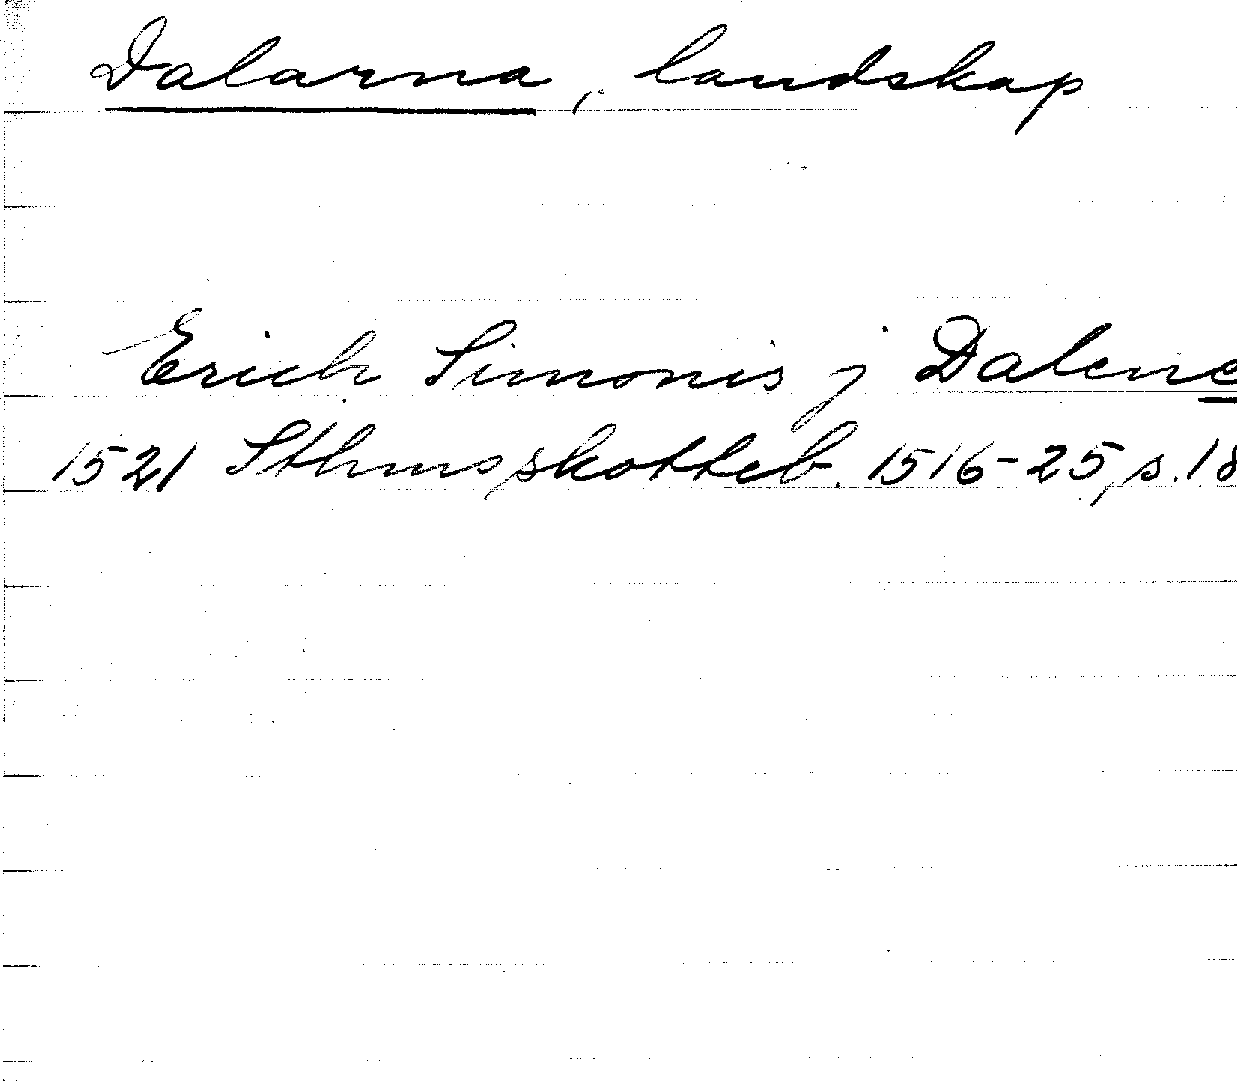 Dalarna, landskap
Erich Simonis j Dalene
1521 Sthms skotteb. 1516-25, s. 18